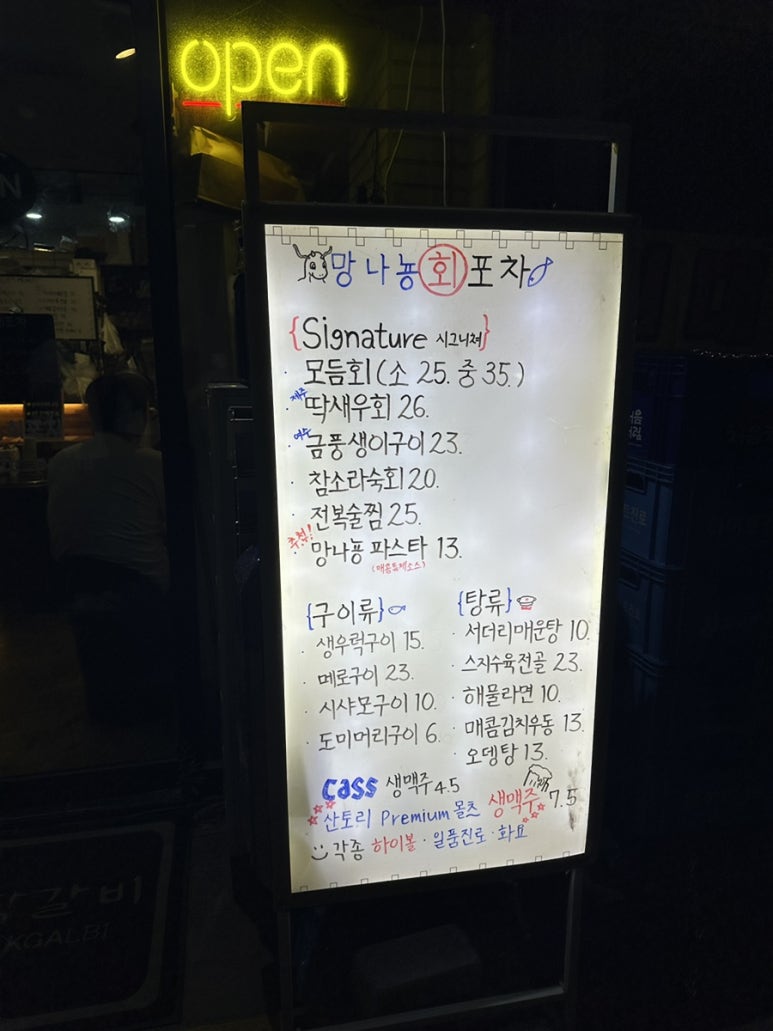 open
망나뇽 회 포차
{Signature 시그니쳐}
· 모듬회 (소 25. 중 35.)
제주
· 딱새우회 26.
여수
· 금풍생이구이 23.
· 참소라숙회 20.
· 전복술찜 25.
추천!
· 망나뇽 파스타 13.
{구이류}
· 생우럭구이 15.
· 메로구이 23.
· 시샤모구이 10.
· 도미머리구이 6.
{탕류}
· 서더리매운탕 10.
· 스지수육전골 23.
· 해물라면 10.
· 매콤김치우동 13.
· 오뎅탕 13.
Cass 생맥주 4.5
산토리 Premium 몰츠 생맥주 7.5
각종 하이볼 · 일품진로 · 화요
갈비
KGALBI